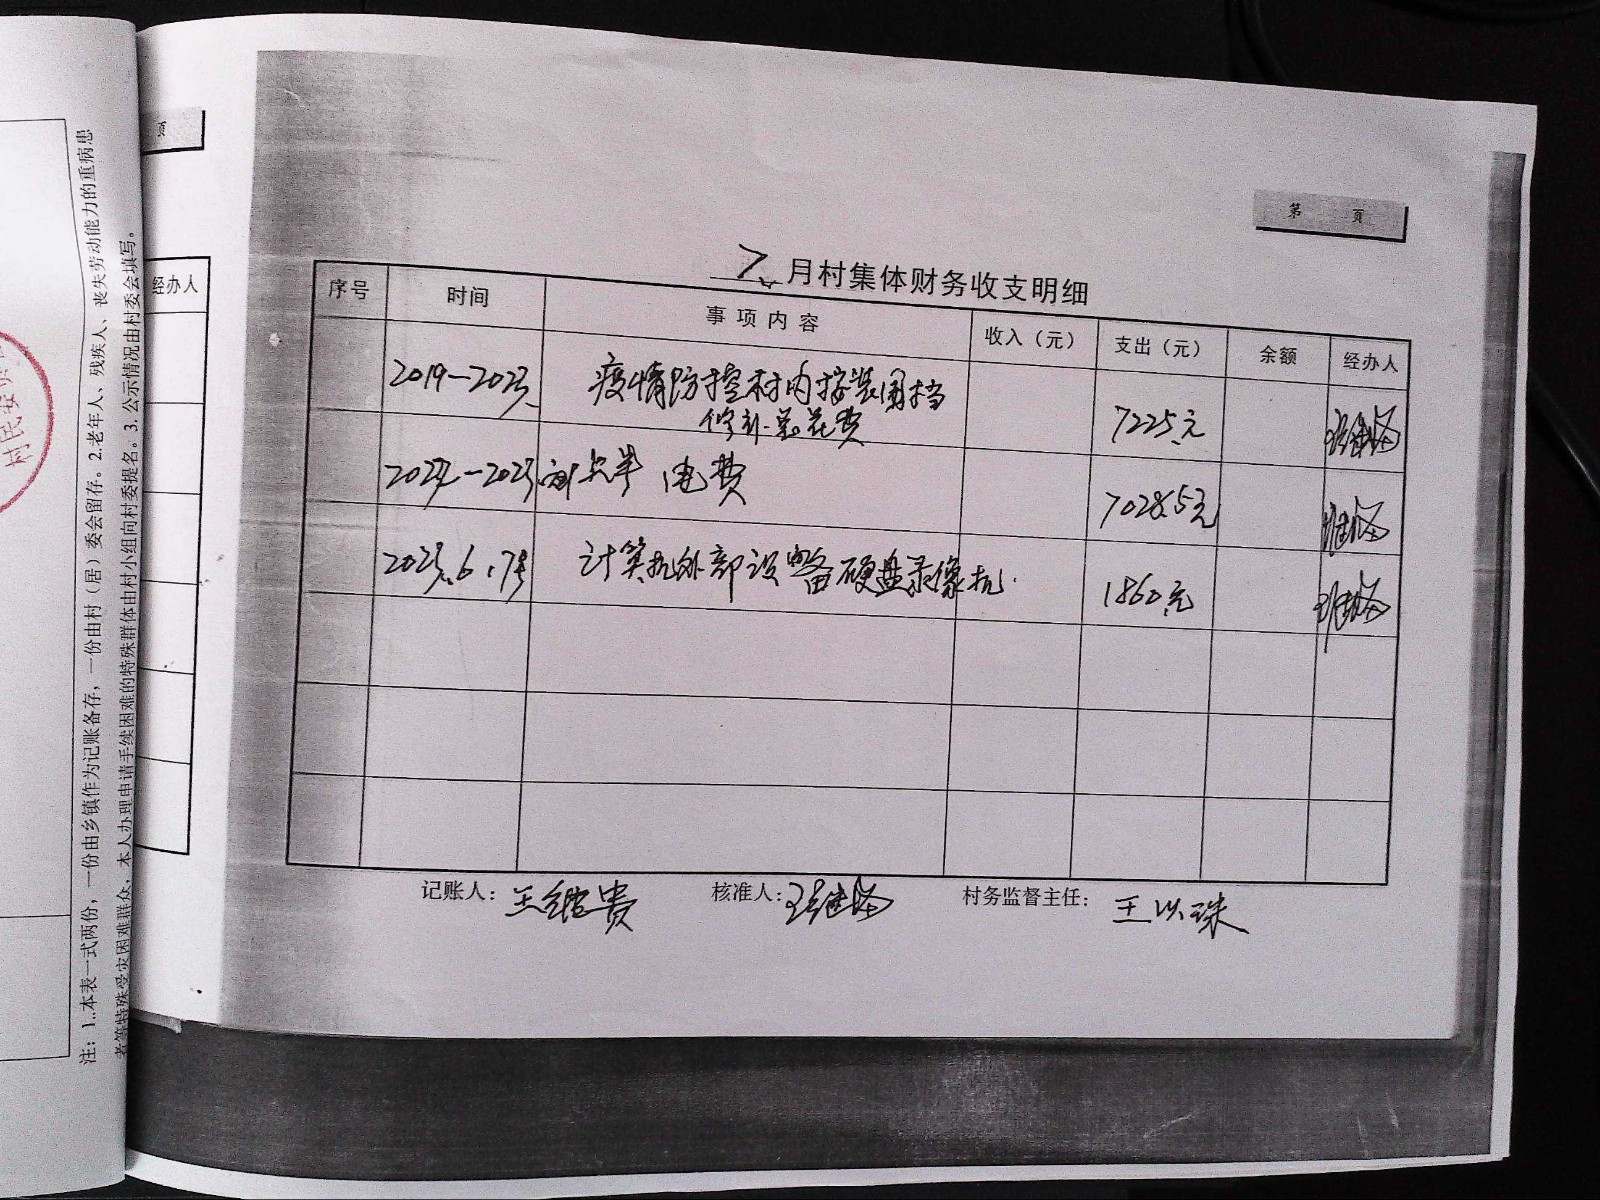 页
经办人
注：1.本表一式两份，一份由乡镇作为记账备存，一份由村（居）委会留存。2.老年人、残疾人、丧失劳动能力的重病患
者等特殊受灾困难群众，本人办理申请手续困难的特殊群体由村小组向村委提名。3.公示情况由村委会填写。
村民委员
第 页
7、月村集体财务收支明细
序号 时间 事项内容 收入（元） 支出（元） 余额 经办人
2019—2023 疫情防控村内按装围挡 7225元
修补 花费
2022—2023 电费 7028.5元
2023.6.17号 计算机外部设备硬盘录像机. 1860元
记账人：王继贵 核准人： 村务监督主任：王以珠